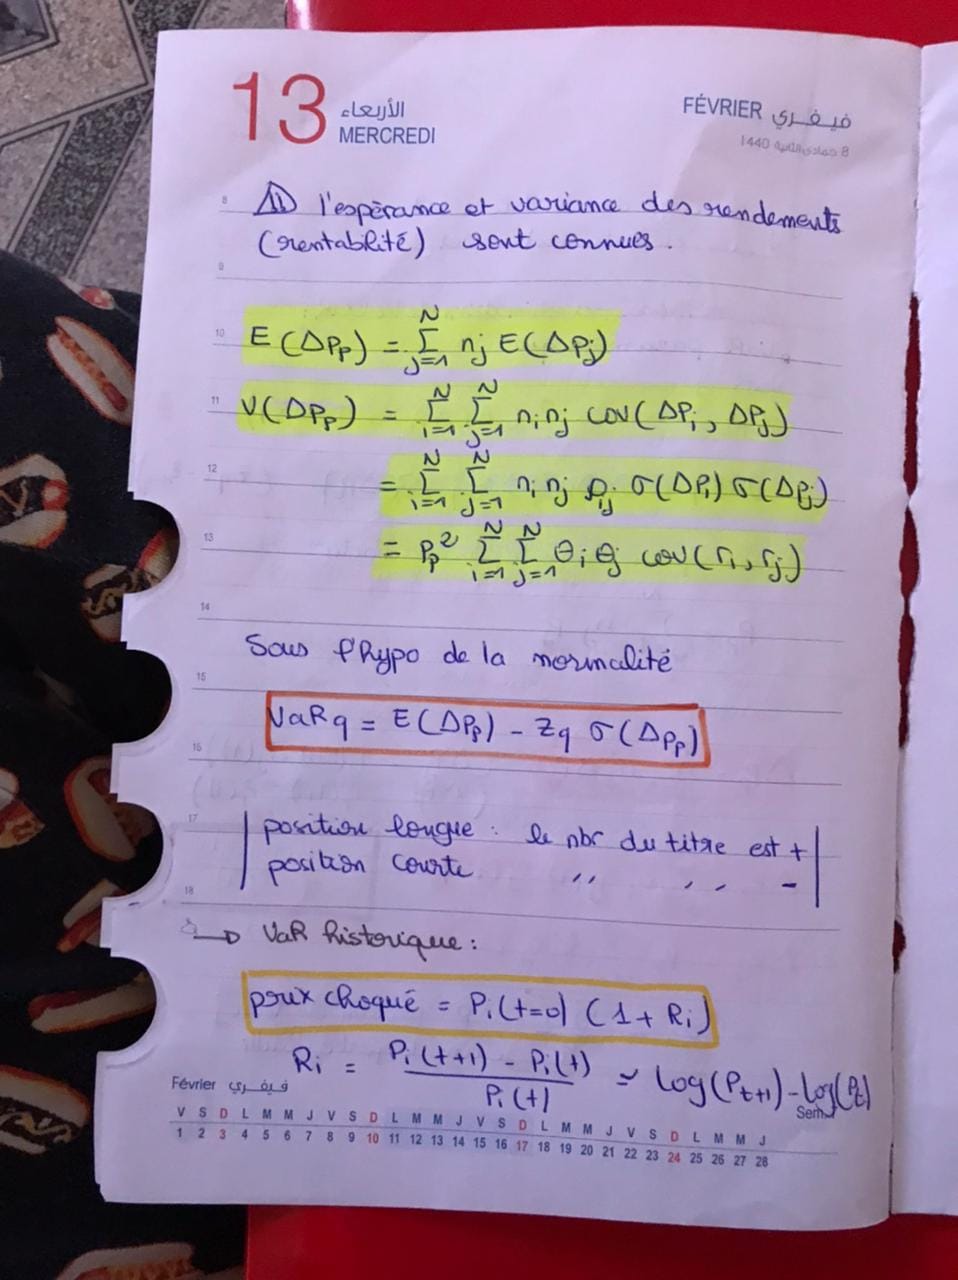 13 الأربعاء
MERCREDI
FÉVRIER فيفري
8 جمادى الثانية 1440
8
⚠ l'espèrance et variance des rendements
(rentabilité) sont connues.
9
10 E(ΔPp) = Σ_{j=1}^{N} nj E(ΔPj)
11 V(ΔPp) = Σ_{i=1}^{N} Σ_{j=1}^{N} ni nj cov(ΔPi, ΔPj)
12 = Σ_{i=1}^{N} Σ_{j=1}^{N} ni nj ρij σ(ΔPi) σ(ΔPj)
13 = Pp² Σ_{i=1}^{N} Σ_{j=1}^{N} θi θj cov(ri, rj)
14
Sous l'hypo de la normalité
15
VaRq = E(ΔPp) - Zq σ(ΔPp)
16
17
position longue : le nbr du titre est +
position courte ,, ,, -
18
→ VaR historique :
prix choqué = Pi(t=0) (1 + Ri)
Ri = (Pi(t+1) - Pi(t)) / Pi(t) ≃ log(Pt+1) - log(Pt)
Février فيفري
V S D L M M J V S D L M M J V S D L M M J V S D L M M J
1 2 3 4 5 6 7 8 9 10 11 12 13 14 15 16 17 18 19 20 21 22 23 24 25 26 27 28